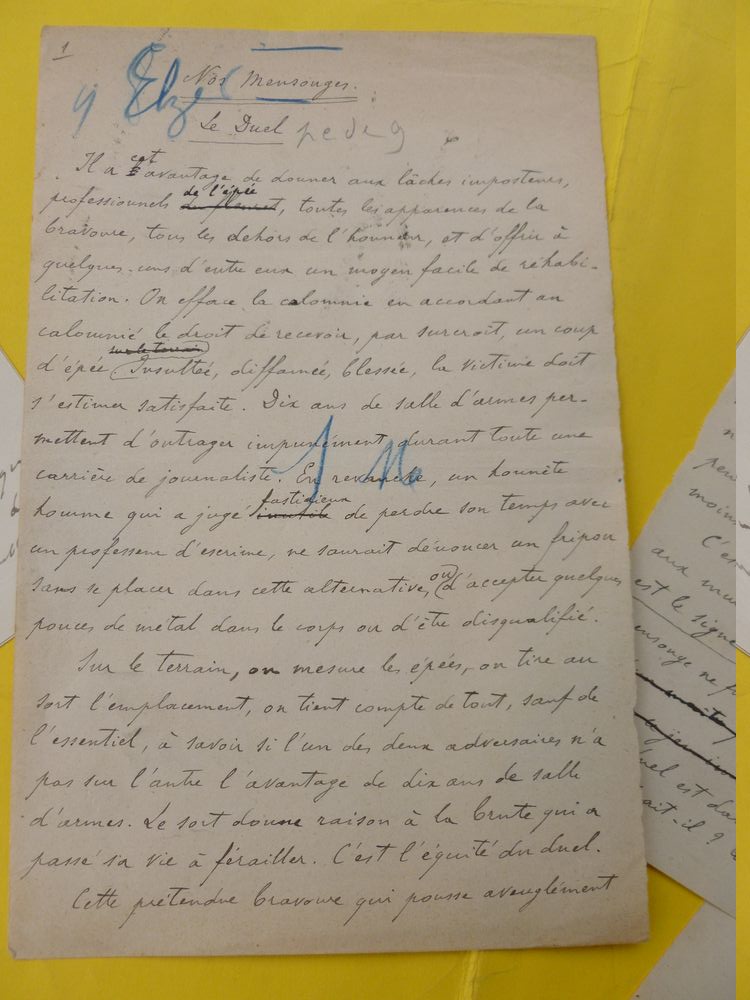 1
Nos Mensonges.
Le Duel
Il a cet avantage de donner aux lâches imposteurs,
de l'épée
professionnels du fleuret, toutes les apparences de la
bravoure, tous les dehors de l'honneur, et d'offrir à
quelques-uns d'entre eux un moyen facile de réhabi-
litation. On efface la calomnie en accordant au
calomnié le droit de recevoir, par surcroît, un coup
sur le terrain
d'épée Insultée, diffamée, blessée, la victime doit
s'estimer satisfaite. Dix ans de salle d'armes per-
mettent d'outrager impunément durant toute une
carrière de journaliste. En revanche, un honnête
fastidieux
homme qui a jugé inutile de perdre son temps avec
un professeur d'escrime, ne saurait dénoncer un fripon
sans se placer dans cette alternative, ou d'accepter quelques
pouces de métal dans le corps ou d'être disqualifié.
Sur le terrain, on mesure les épées, on tire au
sort l'emplacement, on tient compte de tout, sauf de
l'essentiel, à savoir si l'un des deux adversaires n'a
pas sur l'autre l'avantage de dix ans de salle
d'armes. Le sort donne raison à la brute qui a
passé sa vie à férailler. C'est l'équité du duel.
Cette prétendue bravoure qui pousse aveuglément
moins
aux
est le signe